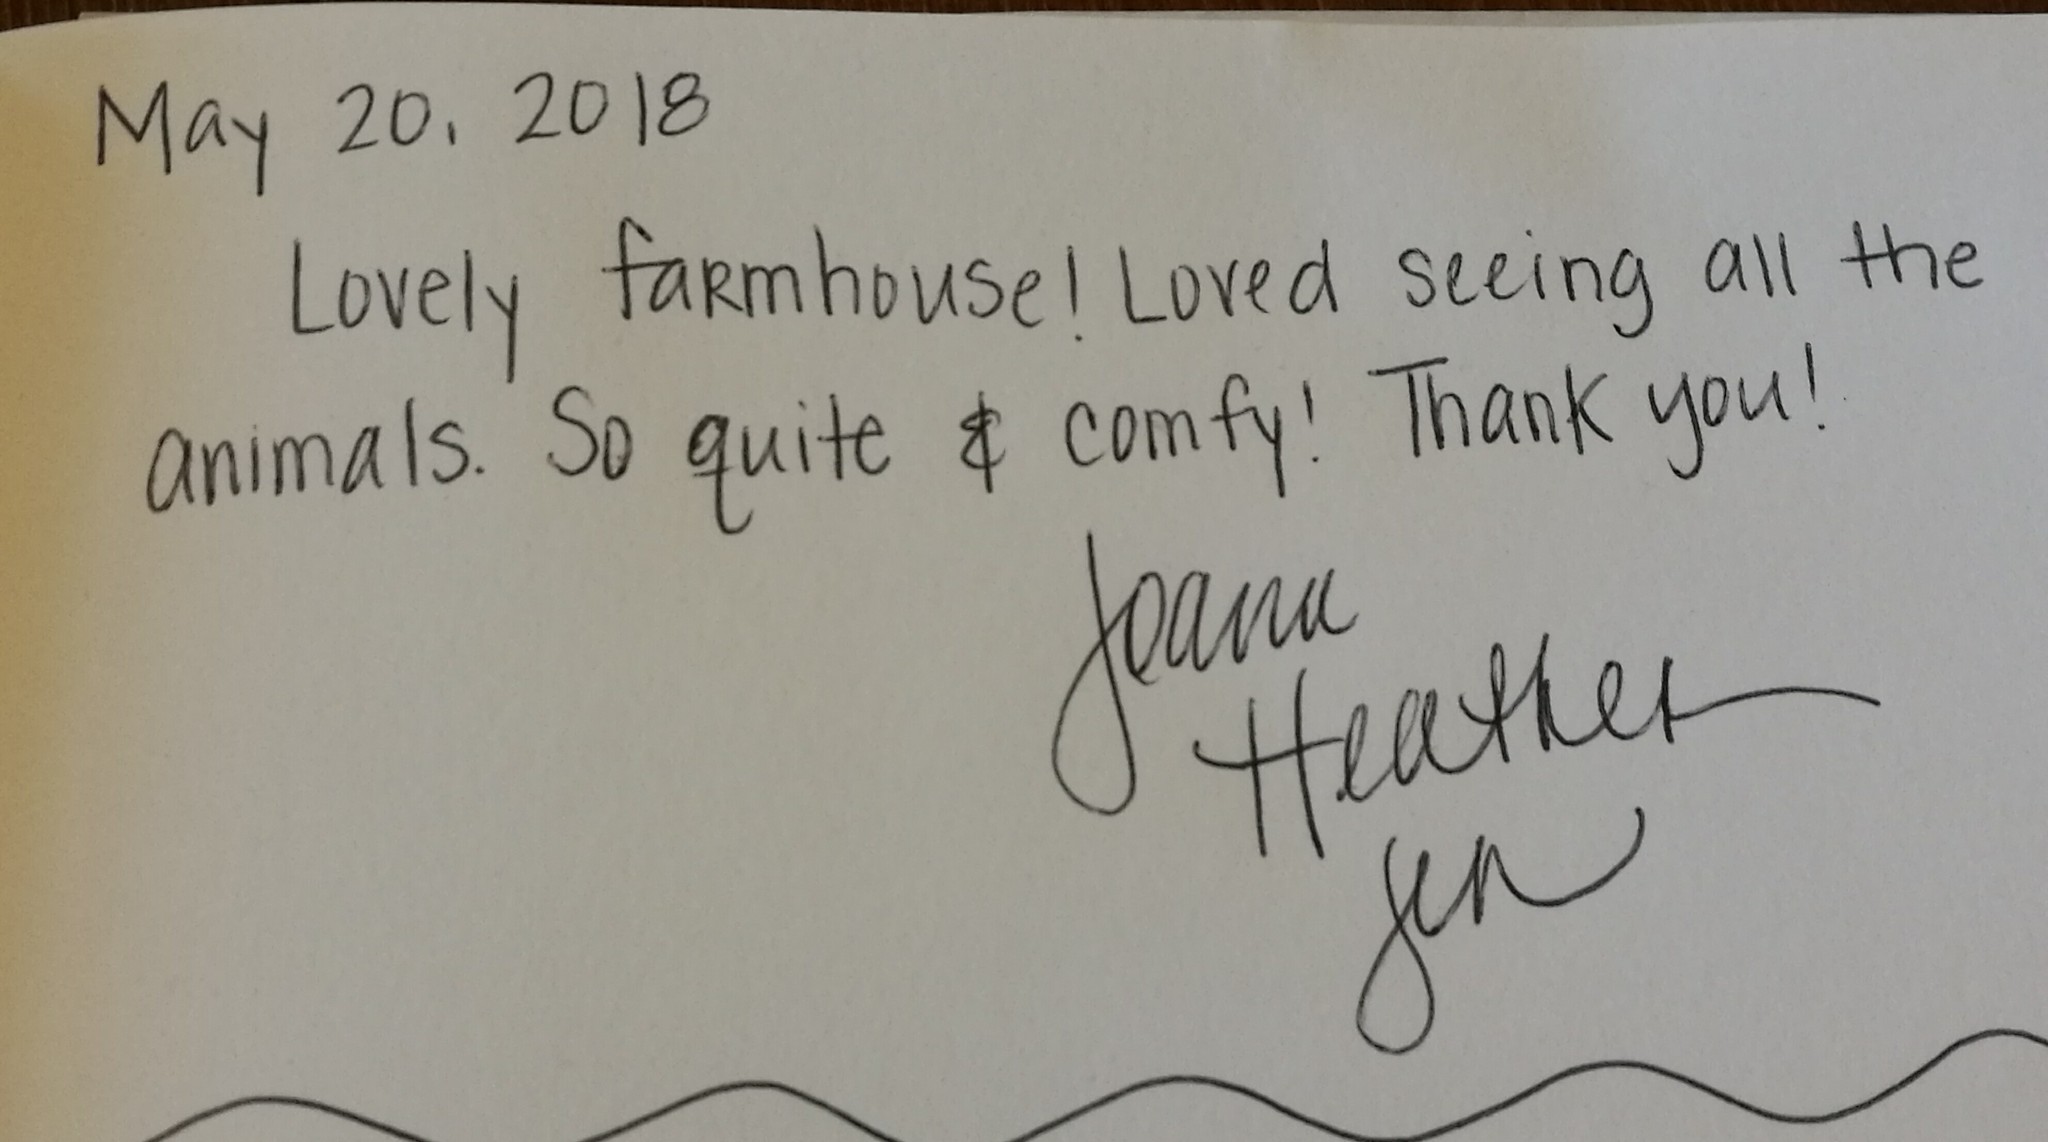 May 20, 2018
Lovely farmhouse! Loved seeing all the
animals. So quite & comfy! Thank you!
Joana
Heather
Jen